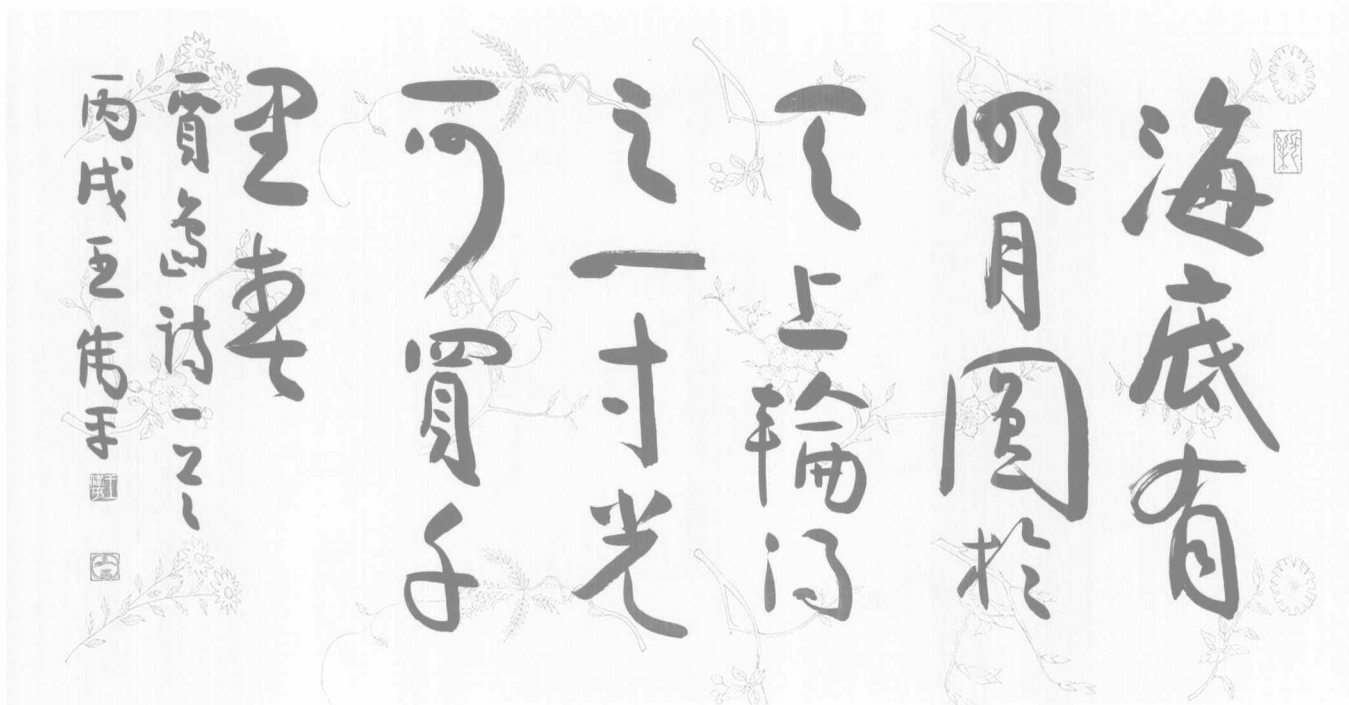 海底有
明月圓於
天上輪得
之一寸光
可買千
里春
賈島詩一首
丙戌王偉平